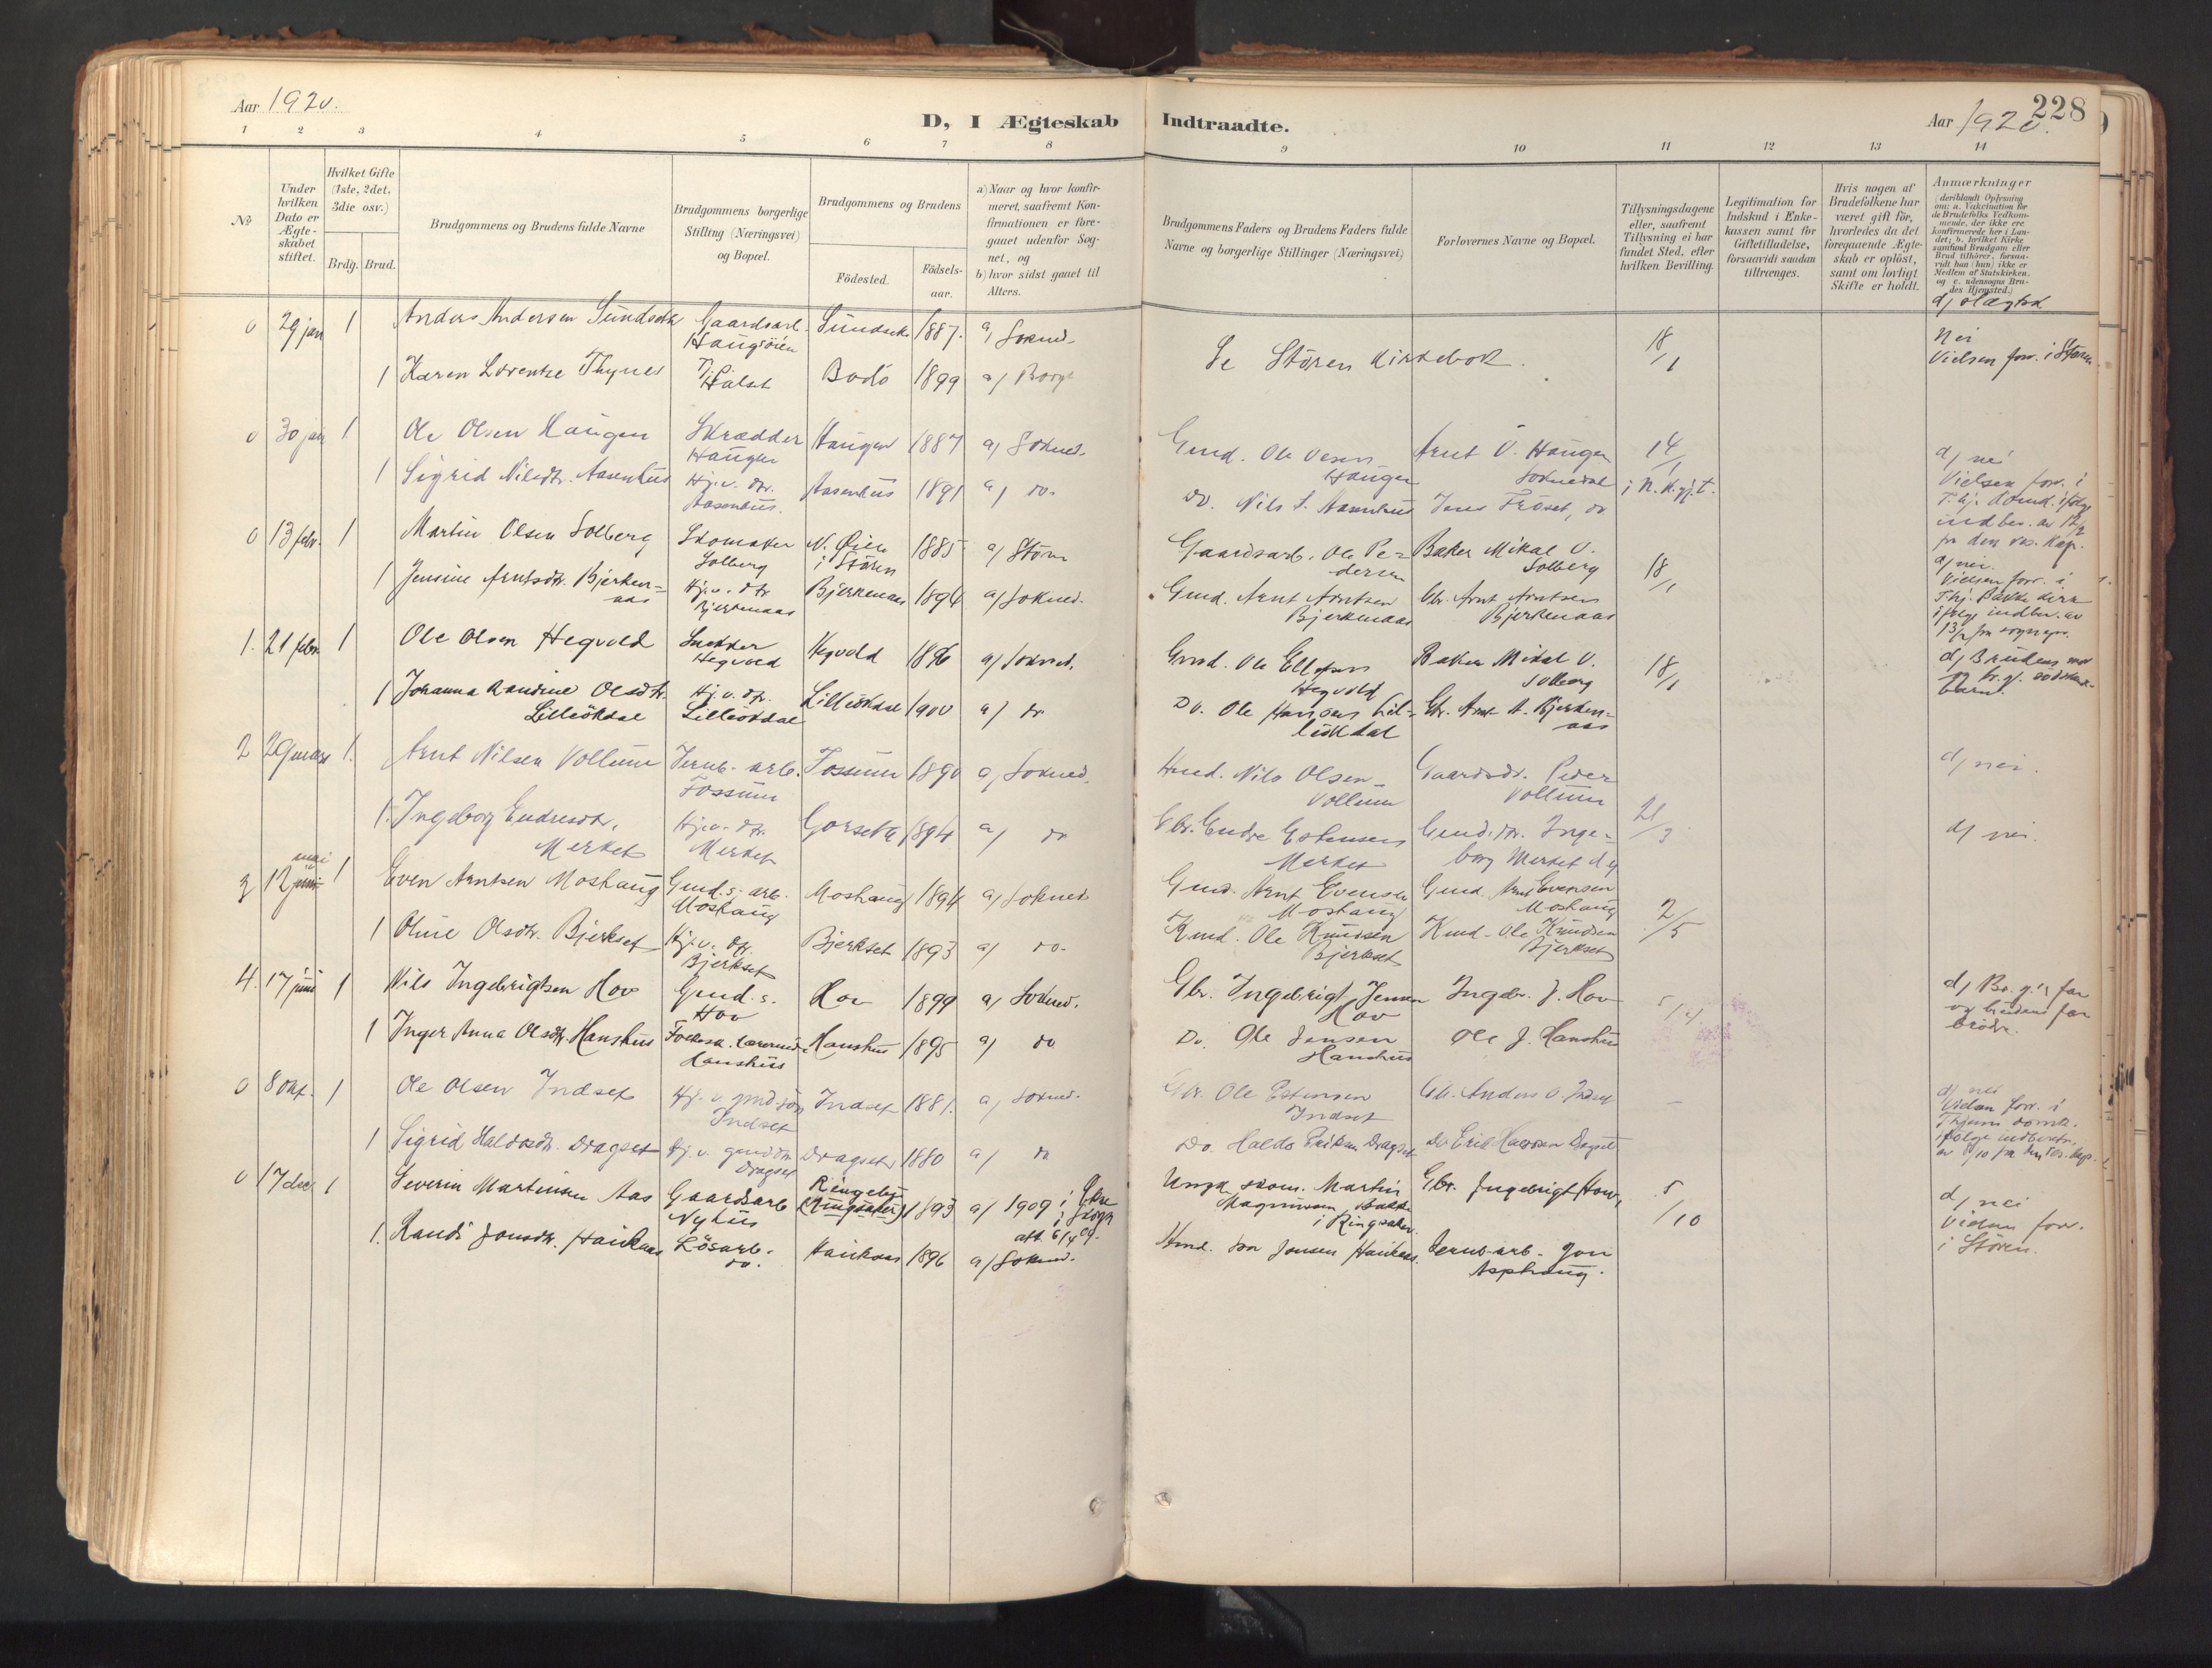 Aar 1920.
D, I Ægteskab Indtraadte.
Aar 1920.
228
1 2 3 4 5 6 7 8 9 10 11 12 13 14
No
Under hvilken Dato er Ægteskabet stiftet.
Hvilket Gifte (1ste, 2det, 3die osv.)
Brdg. Brud.
Brudgommens og Brudens fulde Navne
Brudgommens borgerlige Stilling (Næringsvei) og Bopæl.
Brudgommens og Brudens
Födested.
Födselsaar.
a) Naar og hvor konfirmeret, saafremt Konfirmationen er foregaaet udenfor Sognet, og
b) hvor sidst gaaet til Alters.
Brudgommens Faders og Brudens Faders fulde Navne og borgerlige Stillinger (Næringsvei)
Forlovernes Navne og Bopæl.
Tillysningsdagene eller, saafremt Tillysning ei har fundet Sted, efter hvilken Bevilling.
Legitimation for Indskud i Enkekassen samt for Giftetilladelse, forsaavidt saadan tiltrænges.
Hvis nogen af Brudefolkene har været gift för, hvorledes da det foregaaende Ægteskab er oplöst, samt om lovligt Skifte er holdt.
Anmærkninger
(deriblandt Oplysning om: a. Vakcination for de Brudefolks Vedkommende, der ikke ere konfirmerede her i Landet; b. hvilket Kirkesamfund Brudgom eller Brud tilhörer, forsaavidt han (hun) ikke er Medlem af Statskirken. og c. udensogns Brudes Hjemsted.)
d) slægtsk
0 29 jan 1 Anders Andersen Sundset Gaardsarb. Haugöien 1887. a) Soknd.
1 Karen Lorentze Thynes Bodö 1899 a)
Se Stören Kirkebok. 18/1
Nei
Vielsen forr. i Stören.
0 30 jan 1 Ole Olsen Haugen Skrædder Haugen Haugen 1887 a) Soknd.
1 Sigrid Nilsdtr. Aasenhus Hj.v. dtr. Aasenhus. Aasenhus 1891 a) do.
Gmd. Ole Olsen Haugen Arnt O. Haugen Soknedal 14/1 i N.K.gj.t.
Do. Nils Aasenhus Jens Fröset, do
d) nei
Vielsen forr. i
0 13 febr. 1 Martin Olsen Solberg Skomaker Solberg N. Öien i Stören 1885 a) Stören
1 Jensine Arntsdtr. Bjerkenaas Hj.v. dtr. Bjerkenaas Bjerkenaas 1894 a) Soknd.
Gaardsarb. Ole Pedersen Baker Mikal O. Solberg 18/1
Gmd. Arnt Arntsen Bjerkenaas Gbr. Arnt Arntsen Bjerkenaas
d) nei.
Vielsen forr. i
ifölge indber. av
1. 21 febr. 1 Ole Olsen Hegvold Snekker Hegvold Hegvold 1896 a) Soknd.
1 Johanna Randine Olsdtr. Lilleökdal Hj.v. dtr. Lilleökdal Lilleökdal 1900 a) do
Gmd. Ole Ellefsen Hegvold Baker Mikal O. Solberg 18/1
Do. Ole Hansen Lilleökdal Gbr. Arnt A. Bjerkenaas
d) Brudens mor og br.g. södskenbarn.
2 29 mars 1. Arnt Nilsen Vollum Jernb. arb. Fossum Fossum 1890 a) Soknd.
1. Ingeborg Endresdtr. Merket Hj.v. dtr. Merket Gorset 1894 a) do
Hmd. Nils Olsen Vollum Gaardsbr. Peder Vollum 21/3
Gbr. Endre Estensen Merket Gmd.dtr. Ingeborg Merket
d) nei.
d) nei.
3 12 mai 1 Even Arntsen Moshaug Gmd.s. arb. Moshaug Moshaug 1894 a) Soknd.
1 Oline Olsdtr. Bjerkset Hj.v. dtr. Bjerkset Bjerkset 1893 a) do.
Gmd. Arnt Evensen Moshaug Gmd. Arnt Evensen Moshaug 2/5
Hmd. Ole Knudsen Bjerkset Hmd. Ole Knudsen Bjerkset
4. 17 juni 1 Nils Ingebrigtsen Hov Gmd.s. Hov Hov 1899 a) Soknd.
1 Inger Anna Olsdtr. Hanshus Folkesk. lærerinde Hanshus Hanshus 1895 a) do
Gbr. Ingebrigt Jensen Hov Ingebr. J. Hov
Do. Ole Jensen Hanshus Ole J. Hanshus
d) Br.g.'s far og brudens far brödre.
0 8 okt. 1 Ole Olsen Indset Hj. v. gmd.sön Indset Indset 1881. a) Soknd.
1 Sigrid Haldosdtr. Dragset Hj. v. gmd.dtr. Dragset Dragset 1880 a) do
Gbr. Ole Estensen Indset Gbr. Anders O. Indset —
Do. Haldo Eriksen Dragset
d) nei
Vielsen forr. i
0 17 dec. 1 Severin Martinsen Aas Gaardsarb. Nyhus Ringeby (Ringsaker) 1893 a) 1909 i
1. Randi Jonsdtr. Haukaas Lösarb. do. Haukaas 1896 a) Soknd.
Martin Magnussen i Ringsaker. Gbr. Ingebrigt Hov, 5/10
Hmd. Jon Jonsen Haukaas. Jernb.arb. Jon Asphaug.
d) nei
Vielsen forr.
i Stören.